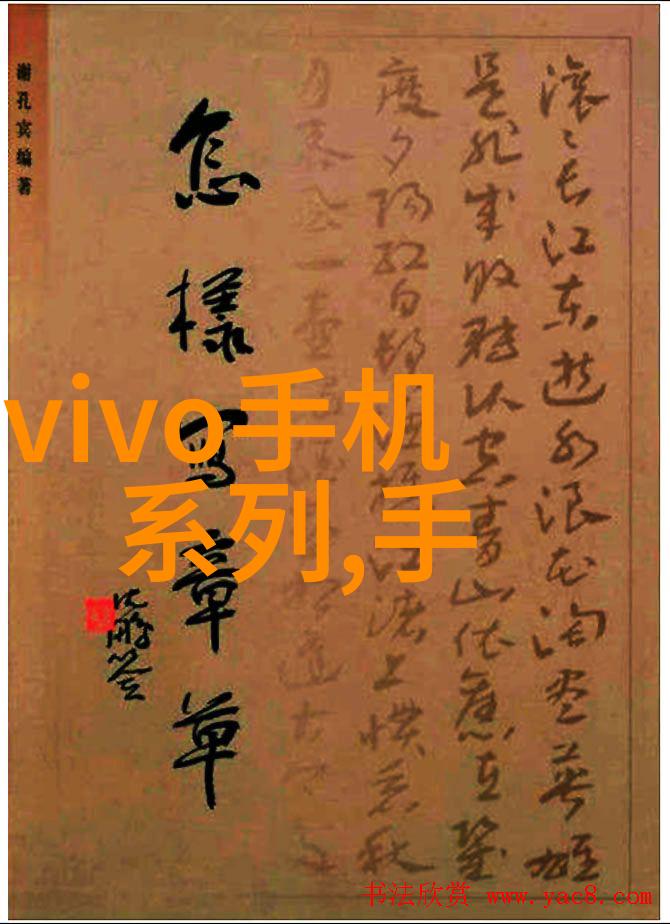 谢孔宾编著
怎樣写章草
沈鹏签
vivo手机
系列,手
滚〻长江东逝水浪花淘尽英雄
是非成败转头空青山依旧在几
度夕阳红白发渔樵江渚上惯看秋
书法欣赏 www.yac8.com